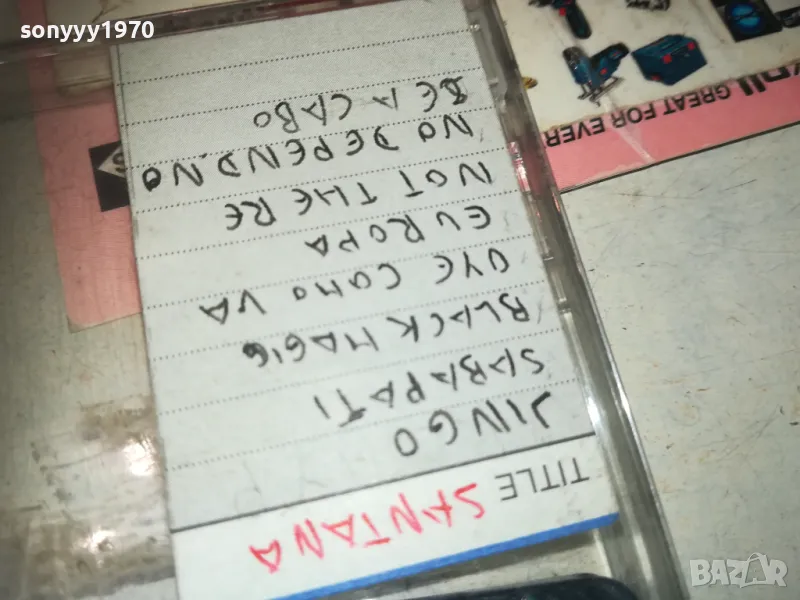 sonyyy1970
TITLE SANTANA
JINGO
SABAPATI
BLACK MAGIG
OYE COMO VA
EUROPA
NOT THERE
NO DEPEND.NO
BEA CABO
GREAT FOR EVER
BAZAR